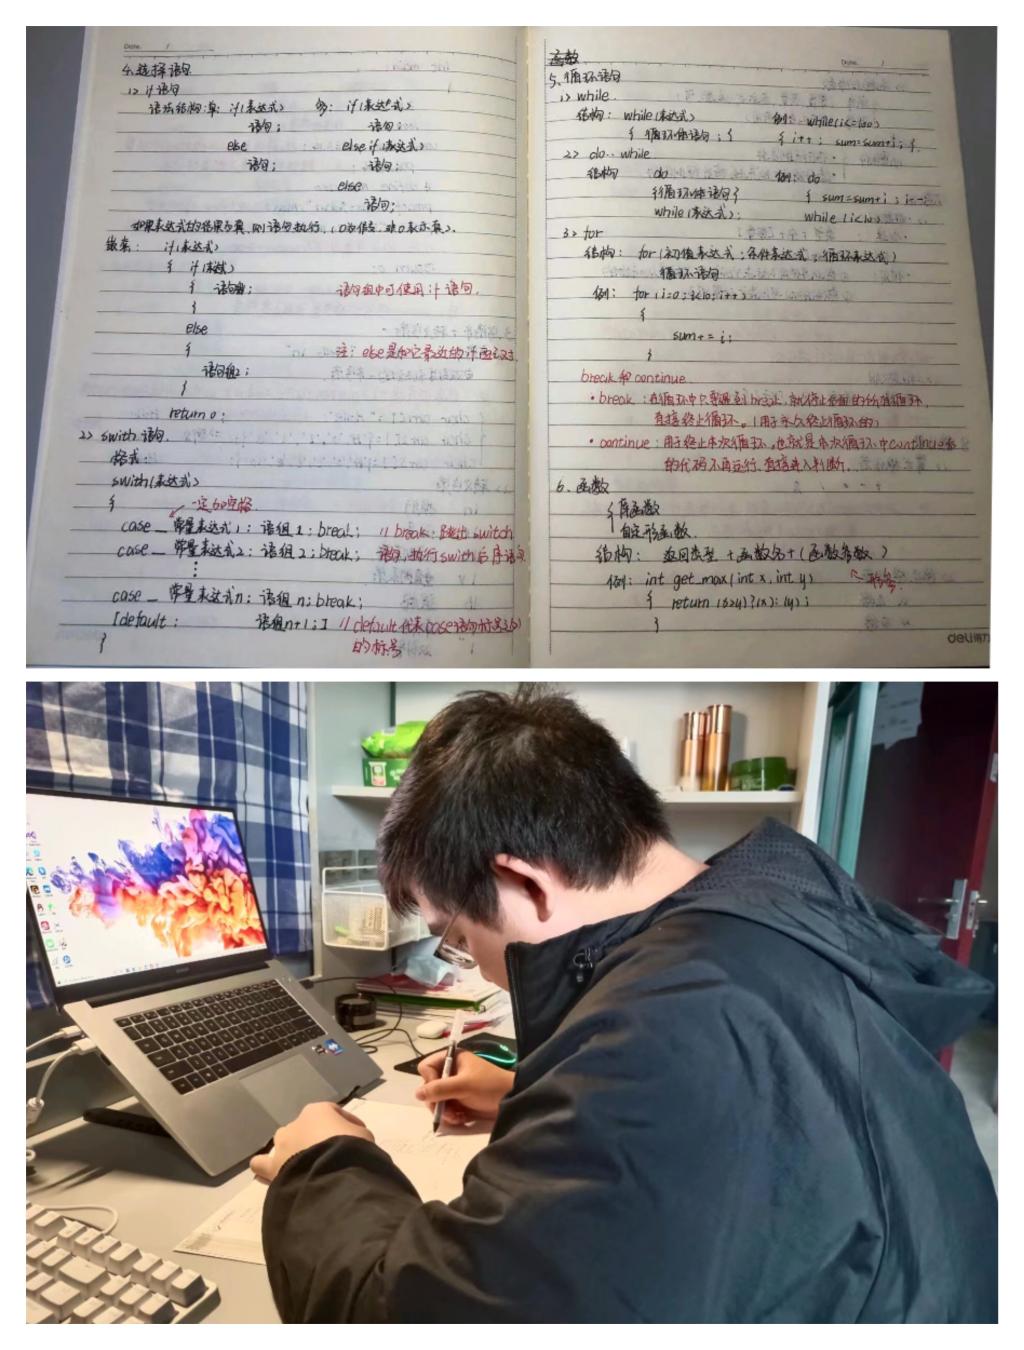 Date. /
4.选择语句
1> if语句
语法结构:单: if(表达式) 多: if(表达式)
语句; 语句;
else else if(表达式)
语句; 语句;
else
语句;
如果表达式的结果为真,则语句执行,(0为假,非0表示真).
嵌套: if(表达式)
{ if(表达式)
{ 语句组1; 语句组中可使用if语句.
}
else
{ 注: else是和它最近的if
语句组2;
}
return 0;
2> swith语句.
格式:
swith(表达式)
{ 一定加空格.
case_ 常量表达式1: 语组1; break; // break: 跳出switch
case_ 常量表达式2: 语组2; break; 语句,执行swith后序语句
⋮
case_ 常量表达式n: 语组n; break;
[default: 语组n+1;] // default代表case语句标号
的标号
}
函数
Date. /
5、循环语句
1> while
结构: while(表达式) 例: while(i<=100)
{ 循环体语句; } { i++; sum=sum+i; }
2> do...while
结构 do 例: do
{循环体语句} { sum=sum+i; i
while(表达式); while(i<10)
3> for
结构: for(初值表达式;条件表达式;循环表达式)
循环语句
例: for(i=0; i<10; i++)
{
sum+=i;
}
break和continue.
•break: 在循环中只要遇到break,就停止后面的所有循环,
直接终止循环。(用于永久终止循环的)
•continue: 用于终止本次循环,也就是本次循环中continue后
的代码不再运行,直接进入判断.
6、函数
{库函数
自定义函数.
结构: 返回类型+函数名+(函数参数)
例: int get_max(int x, int y) 形参.
{ return (x>y)?(x):(y);
}
deli得力